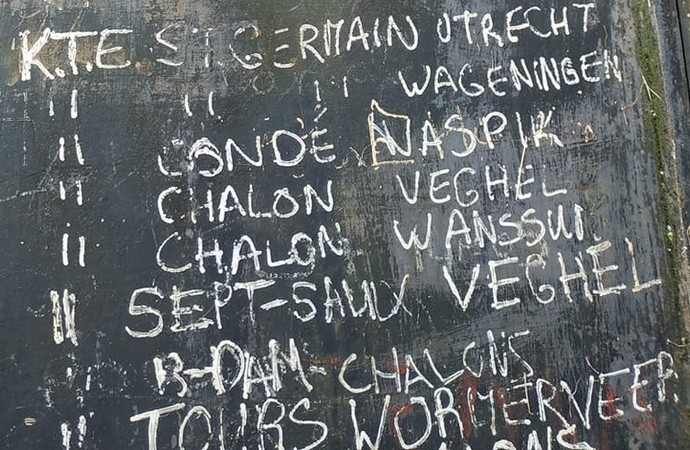 K.T.E. ST GERMAIN UTRECHT
" " " WAGENINGEN
" CONDÉ WASPIK
" CHALON VEGHEL
" CHALON WANSSUM
" SEPT-SAULX VEGHEL
" B-DAM-CHALONS
" TOURS WORMERVEER